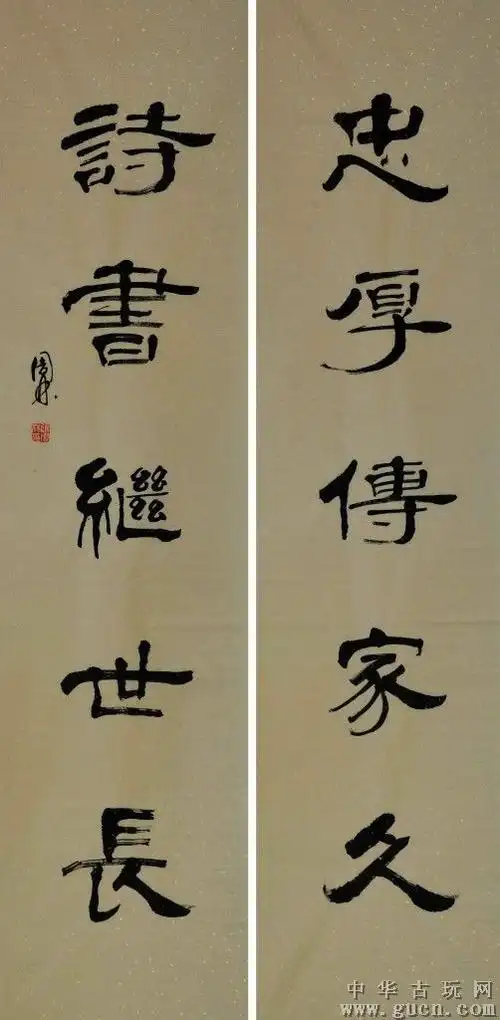 忠厚傳家久
詩書繼世長
中华古玩网
www.gucn.com